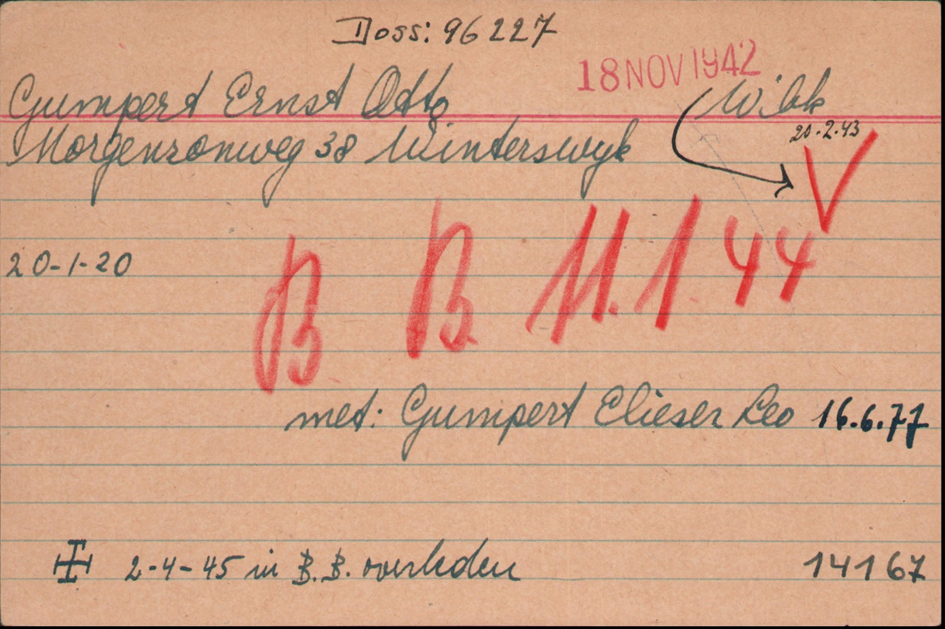 Doss: 96227
18 NOV 1942
Gumpert Ernst Otto
20.2.43
Morgenzonweg 38 Winterswyk
V
20-1-20
B B 11.1 44
met: Gumpert Elieser Leo 16.6.77
2-4-45 in B.B. overleden 14167